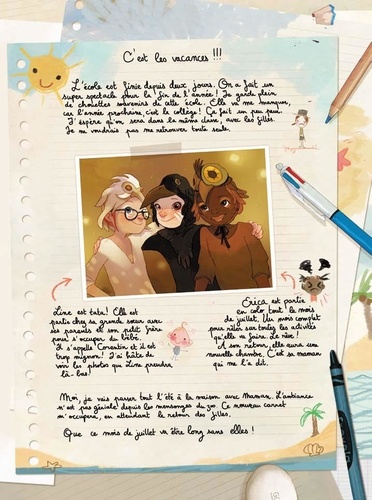 C'est les vacances !!!
L'école est finie depuis deux jours. On a fait un
super spectacle pour la fin de l'année ! Je garde plein
de chouettes souvenirs de cette école. Elle va me manquer,
car l'année prochaine, c'est le collège ! Ça fait un peu peur.
J'espère qu'on sera dans la même classe, avec les filles.
Je ne voudrais pas me retrouver toute seule.
Line est tata ! Elle est
partie chez sa grande sœur avec
ses parents et son petit frère
pour s'occuper du bébé.
Il s'appelle Corentin et il est
trop mignon ! J'ai hâte de
voir les photos que Line prendra
là-bas !
Erica est partie
en colo tout le mois
de juillet. Un mois complet
pour râler sur toutes les activités
qu'elle va faire. Le rêve !
À son retour, elle aura une
nouvelle chambre. C'est sa maman
qui me l'a dit.
Moi, je vais passer tout l'été à la maison avec Maman. L'ambiance
n'est pas géniale depuis les mensonges du zoo. Ce nouveau carnet
m'occupera, en attendant le retour des filles.
Que ce mois de juillet va être long sans elles !